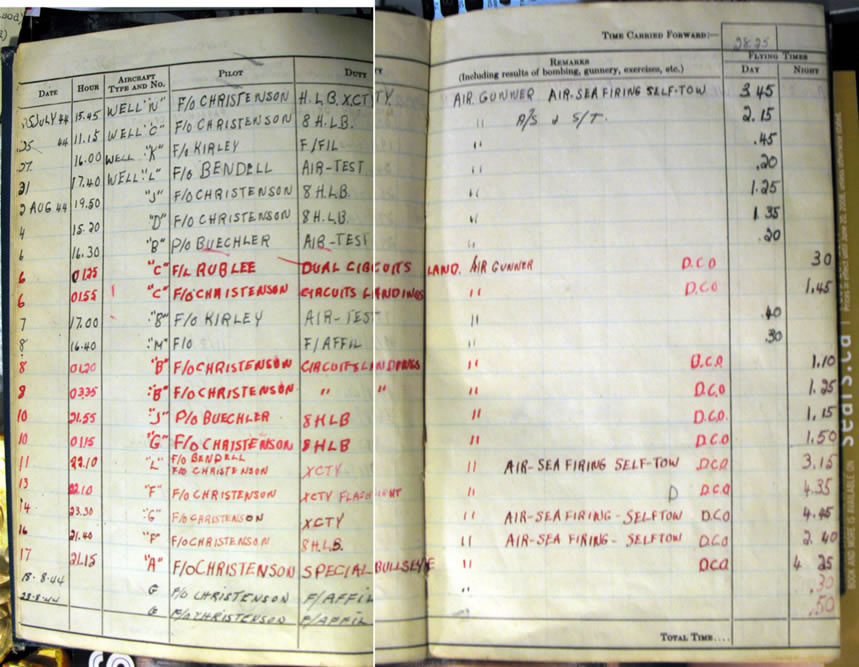 TIME CARRIED FORWARD:— 28.25
DATE HOUR AIRCRAFT TYPE AND NO. PILOT DUTY REMARKS (Including results of bombing, gunnery, exercises, etc.) FLYING TIMES DAY NIGHT
25 JULY 44 15.45 WELL "N" F/O CHRISTENSON H.L.B. XCTY. AIR GUNNER AIR-SEA FIRING SELF-TOW 3 45
25 44 11.15 WELL "C" F/O CHRISTENSON 8 H.L.B. " A/S & S/T. 2.15
27. 16.00 WELL "K" F/O KIRLEY F/FIL " .45
31 17.40 WELL "L" F/O BENDELL AIR-TEST " .20
2 AUG 44 19.50 "J" F/O CHRISTENSON 8 H.L.B " 1.25
4 15.20 "D" F/O CHRISTENSON 8 H.L.B. " 1.35
6 16.30 "B" P/O BUECHLER AIR-TEST " .20
6 0125 "C" F/L RUBLEE DUAL CIRCUITS LAND. AIR GUNNER D.C.O 30
6 0155 "C" F/O CHRISTENSON CIRCUITS LANDINGS " D.C.O 1.45
7 17.00 "8" F/O KIRLEY AIR-TEST " .40
8 16.40 "M" F/O F/AFFIL " .30
8 0120 "B" F/O CHRISTENSON CIRCUITS LANDINGS " D.C.O. 1.10
8 0335 "B" F/O CHRISTENSON " " " D.C.O 1.25
10 21.55 "J" P/O BUECHLER 8 H L B " D.C.O. 1.15
10 0115 "G" F/O CHRISTENSON 8 H L B " D.C.O 1.50
11 22.10 "L" F/O BENDELL
F/O CHRISTENSON XCTY " AIR-SEA FIRING SELF-TOW D.C.O 3.15
13 22.10 "F" F/O CHRISTENSON XCTY " D D.C.O 4.35
14 23.30 "G" F/O CHRISTENSON XCTY " AIR-SEA FIRING-SELFTOW D.C.O
16 21.40 "F" F/O CHRISTENSON 8 H.L.B. " AIR-SEA FIRING- SELFTOW D.C.O 2.40
17 21.15 "A" F/O CHRISTENSON SPECIAL BULLSEYE " D.C.O 4 25
18-8-44 G F/O CHRISTENSON F/AFFIL " .30
28-8-44 G F/O CHRISTENSON F/AFFIL .50
TOTAL TIME....
sears.ca